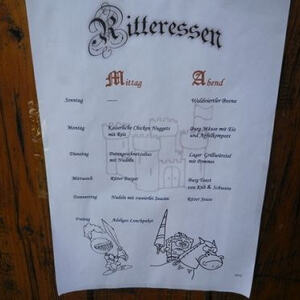 Ritteressen
Mittag Abend
Sonntag —— Waldviertler Buena
Montag Kaiserliche Chicken Nuggets Burg Mäuse mit Eis
mit Reis und Apfelkompott
Dienstag mit Nudeln Lager Grillwürstel
mit Pommes
Mittwoch Ritter Burger Burg Toast
von Kuh & Schwein
Donnerstag Nudeln mit zweierlei Saucen Ritter Jause
Freitag Adeliges Lunchpaket